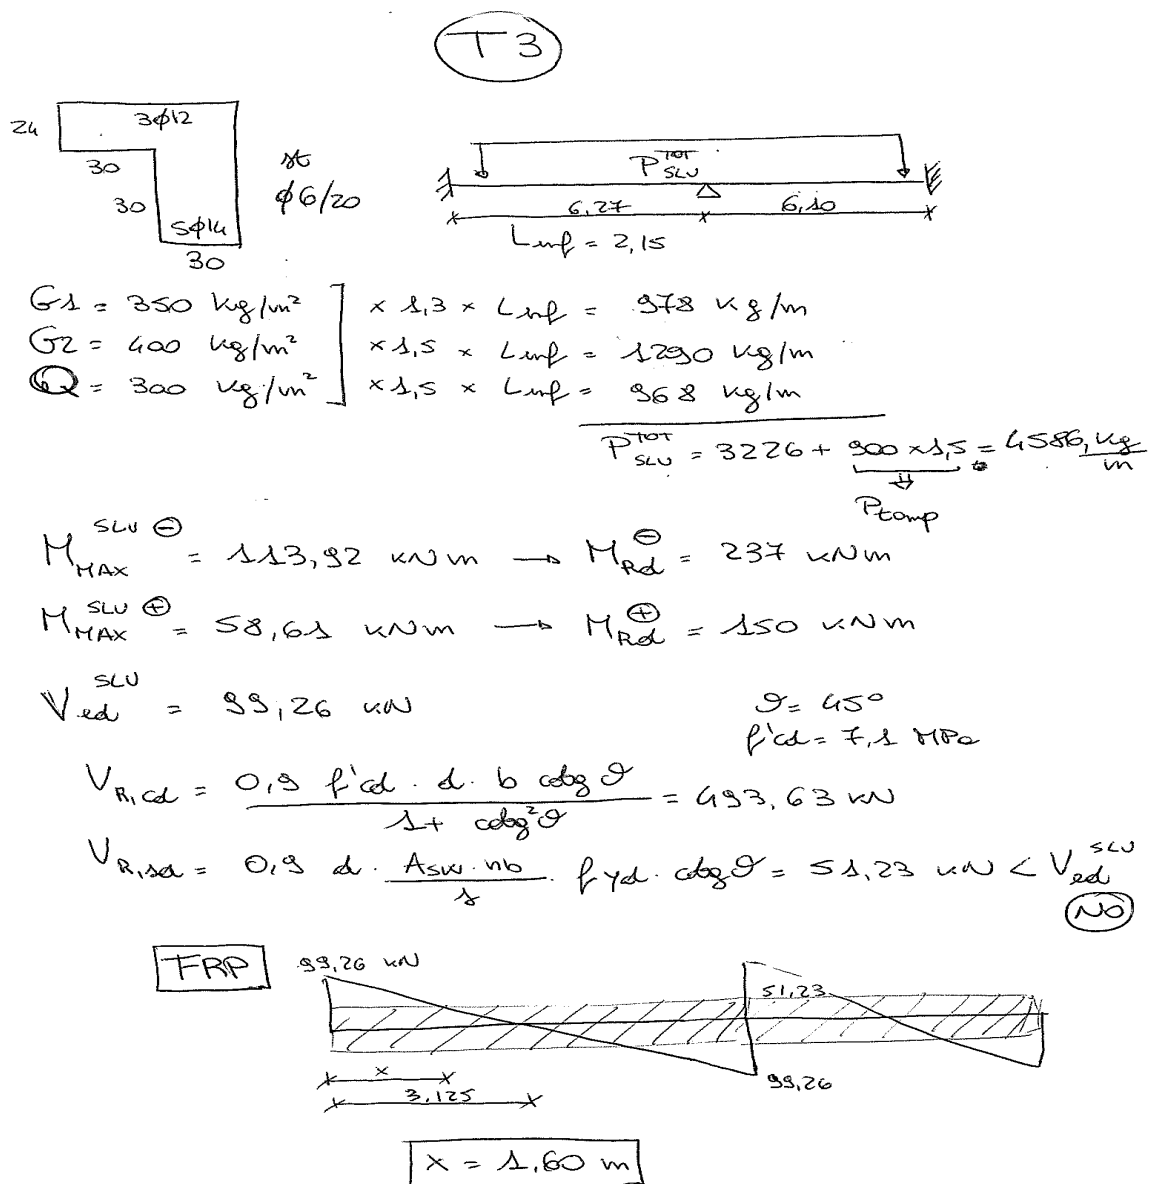 T3
24
3φ12
30
30
st
φ6/20
5φ14
30
P_SLU^TOT
6,27
6,10
Linf = 2,15
G1 = 350 kg/m² ] × 1,3 × Linf = 978 kg/m
G2 = 400 kg/m² ] × 1,5 × Linf = 1290 kg/m
Q = 300 kg/m² ] × 1,5 × Linf = 968 kg/m
P_SLU^TOT = 3226 + 900 × 1,5 = 4586, kg/m
⇓
Ptomp
M_MAX^SLU ⊖ = 113,92 kNm → M_Rd^⊖ = 237 kNm
M_MAX^SLU ⊕ = 58,61 kNm → M_Rd^⊕ = 150 kNm
V_ed^SLU = 99,26 kN
ϑ = 45°
f'cd = 7,1 MPa
V_R,cd = 0,9 f'cd · d · b cotg ϑ / 1 + cotg²ϑ = 493,63 kN
V_R,sd = 0,9 d · Asw · nb / s · fyd · cotg ϑ = 51,23 kN < V_ed^SLU
NO
FRP
99,26 kN
51,23
99,26
x
3,125
x = 1,60 m